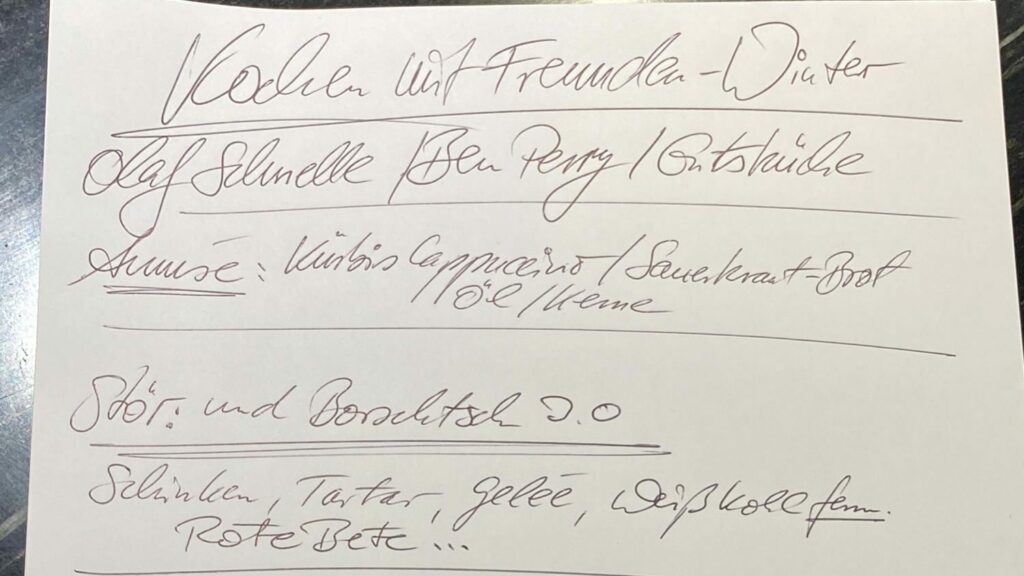 Kochen mit Freunden - Winter
Olaf Schnelle / Ben Perry / Gutsküche
Amuse: Kürbis Cappuccino / Sauerkraut-Brot
Öl / Kerne
Stör: und Borschtsch 2.0
Schinken, Tartar, Gelée, Weißkohl ferm.
Rote Bete ...